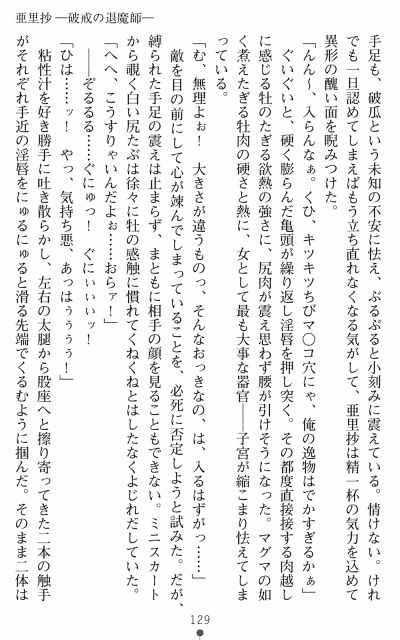 亜里抄 ―破戒の退魔師―
手足も、破瓜という未知の不安に怯え、ぶるぶると小刻みに震えている。情けない。けれ
でも一旦認めてしまえばもう立ち直れなくなる気がして、亜里抄は精一杯の気力を込めて
異形の醜い面を睨みつけた。
「んん～、入らんなぁ。くひ、キツキツちびマ〇コ穴にゃ、俺の逸物はでかすぎるかぁ」
ぐいぐいと、硬く膨らんだ亀頭が繰り返し淫唇を押し突く。その都度直接接する肉越し
に感じる牡のたぎる欲熱の強さに、尻肉が震え思わず腰が引けそうになった。マグマの如
く煮えたぎる牡肉の硬さと熱に、女として最も大事な器官――子宮が縮こまり怯えてしま
っている。
「む、無理よぉ！　大きさが違うものっ、そんなおっきなの、は、入るはずがっ……」
敵を目の前にして心が竦んでしまっていることを、必死に否定しようと試みた。だが、
縛られた手足の震えは止まらず、まともに相手の顔を見ることもできない。ミニスカート
から覗く白い尻たぶは徐々に牡の感触に慣れてくねくねとはしたなくよじれだしていた。
「へへ、こうすりゃいんだよぉ……おらァ！」
――ぞるるる……ぐにゅっ！　ぐにぃぃぃッ！
「ひは……ッ！　やっ、気持ち悪、あっはぅぅぅぅ！」
粘性汁を好き勝手に吐き散らかし、左右の太腿から股座へと擦り寄ってきた二本の触手
がそれぞれ手近の淫唇をにゅるにゅると滑る先端でくるむように掴んだ。そのまま二体は
129